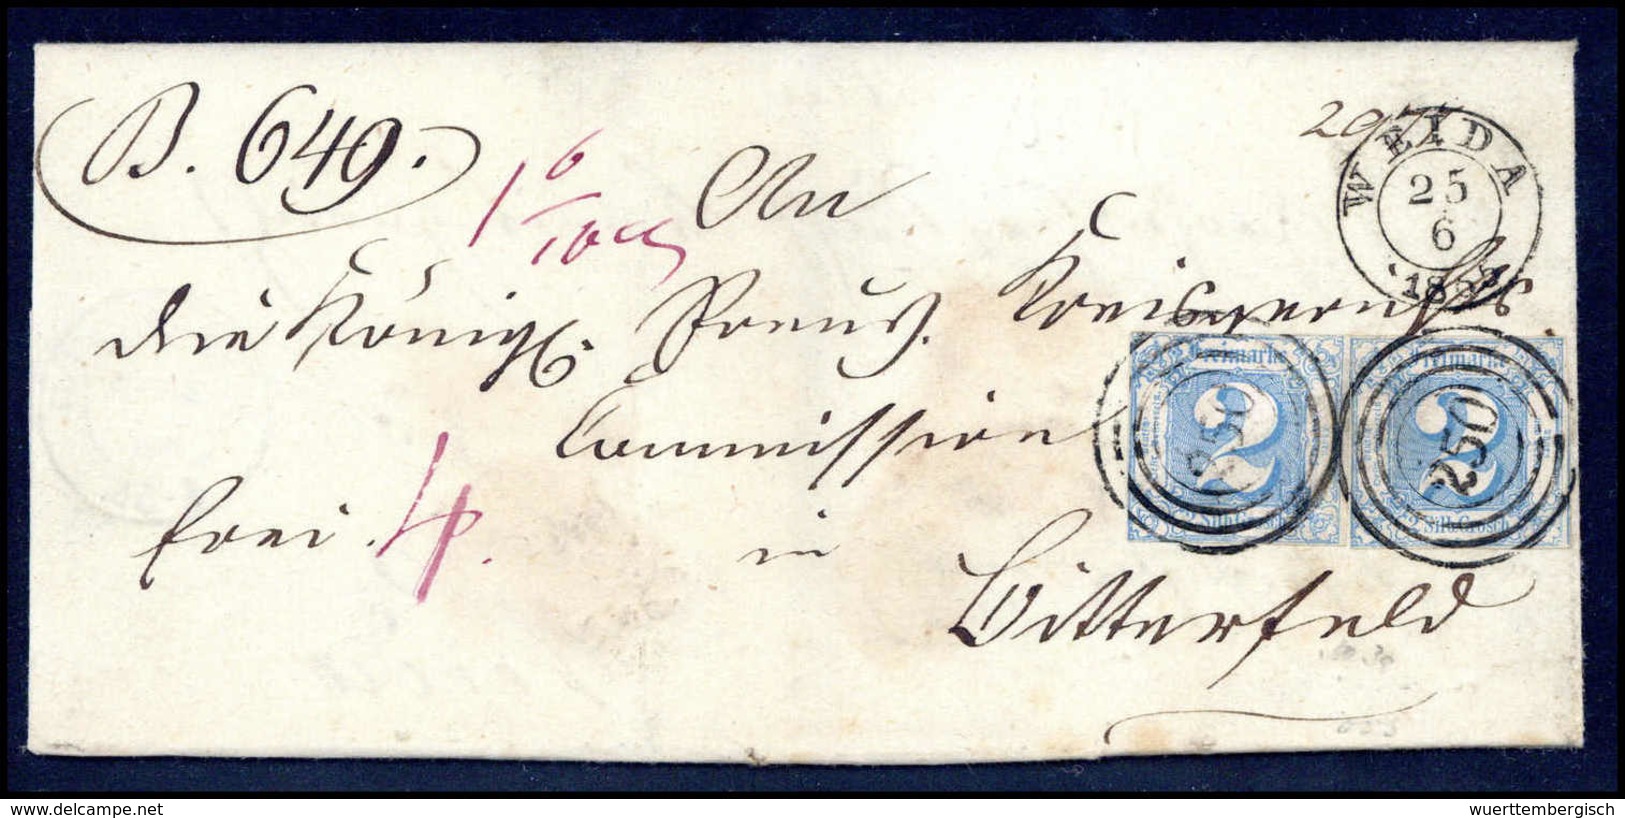 B. 649.
1 6/10
An
die Königl. Preuß. Kreisgerichts
Commission
frei. 4.
in
Bitterfeld
WEIDA
25
6
Freimarke
2
250
2 Silb. Grosch
Freimarke
2
250
2 Silb. Grosch
www.delcampe.net
wuerttembergisch